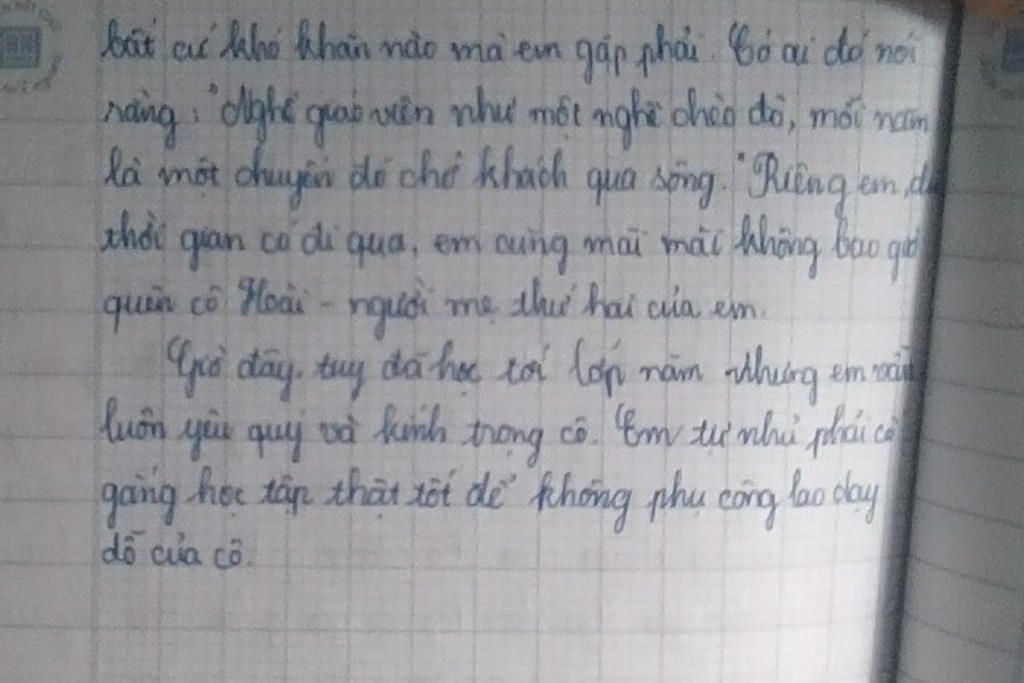 bất cứ khó khăn nào mà em gặp phải. Có ai đó nói
rằng: "Nghề giáo viên như một nghề chèo đò, mỗi năm
là một chuyến đò chở khách qua sông." Riêng em, dù
thời gian có đi qua, em cũng mãi mãi không bao giờ
quên cô Hoài - người mẹ thứ hai của em.
Giờ đây, tuy đã học tới lớp năm nhưng em vẫn
luôn yêu quý và kính trọng cô. Em tự nhủ phải cố
gắng học tập thật tốt để không phụ công lao dạy
dỗ của cô.